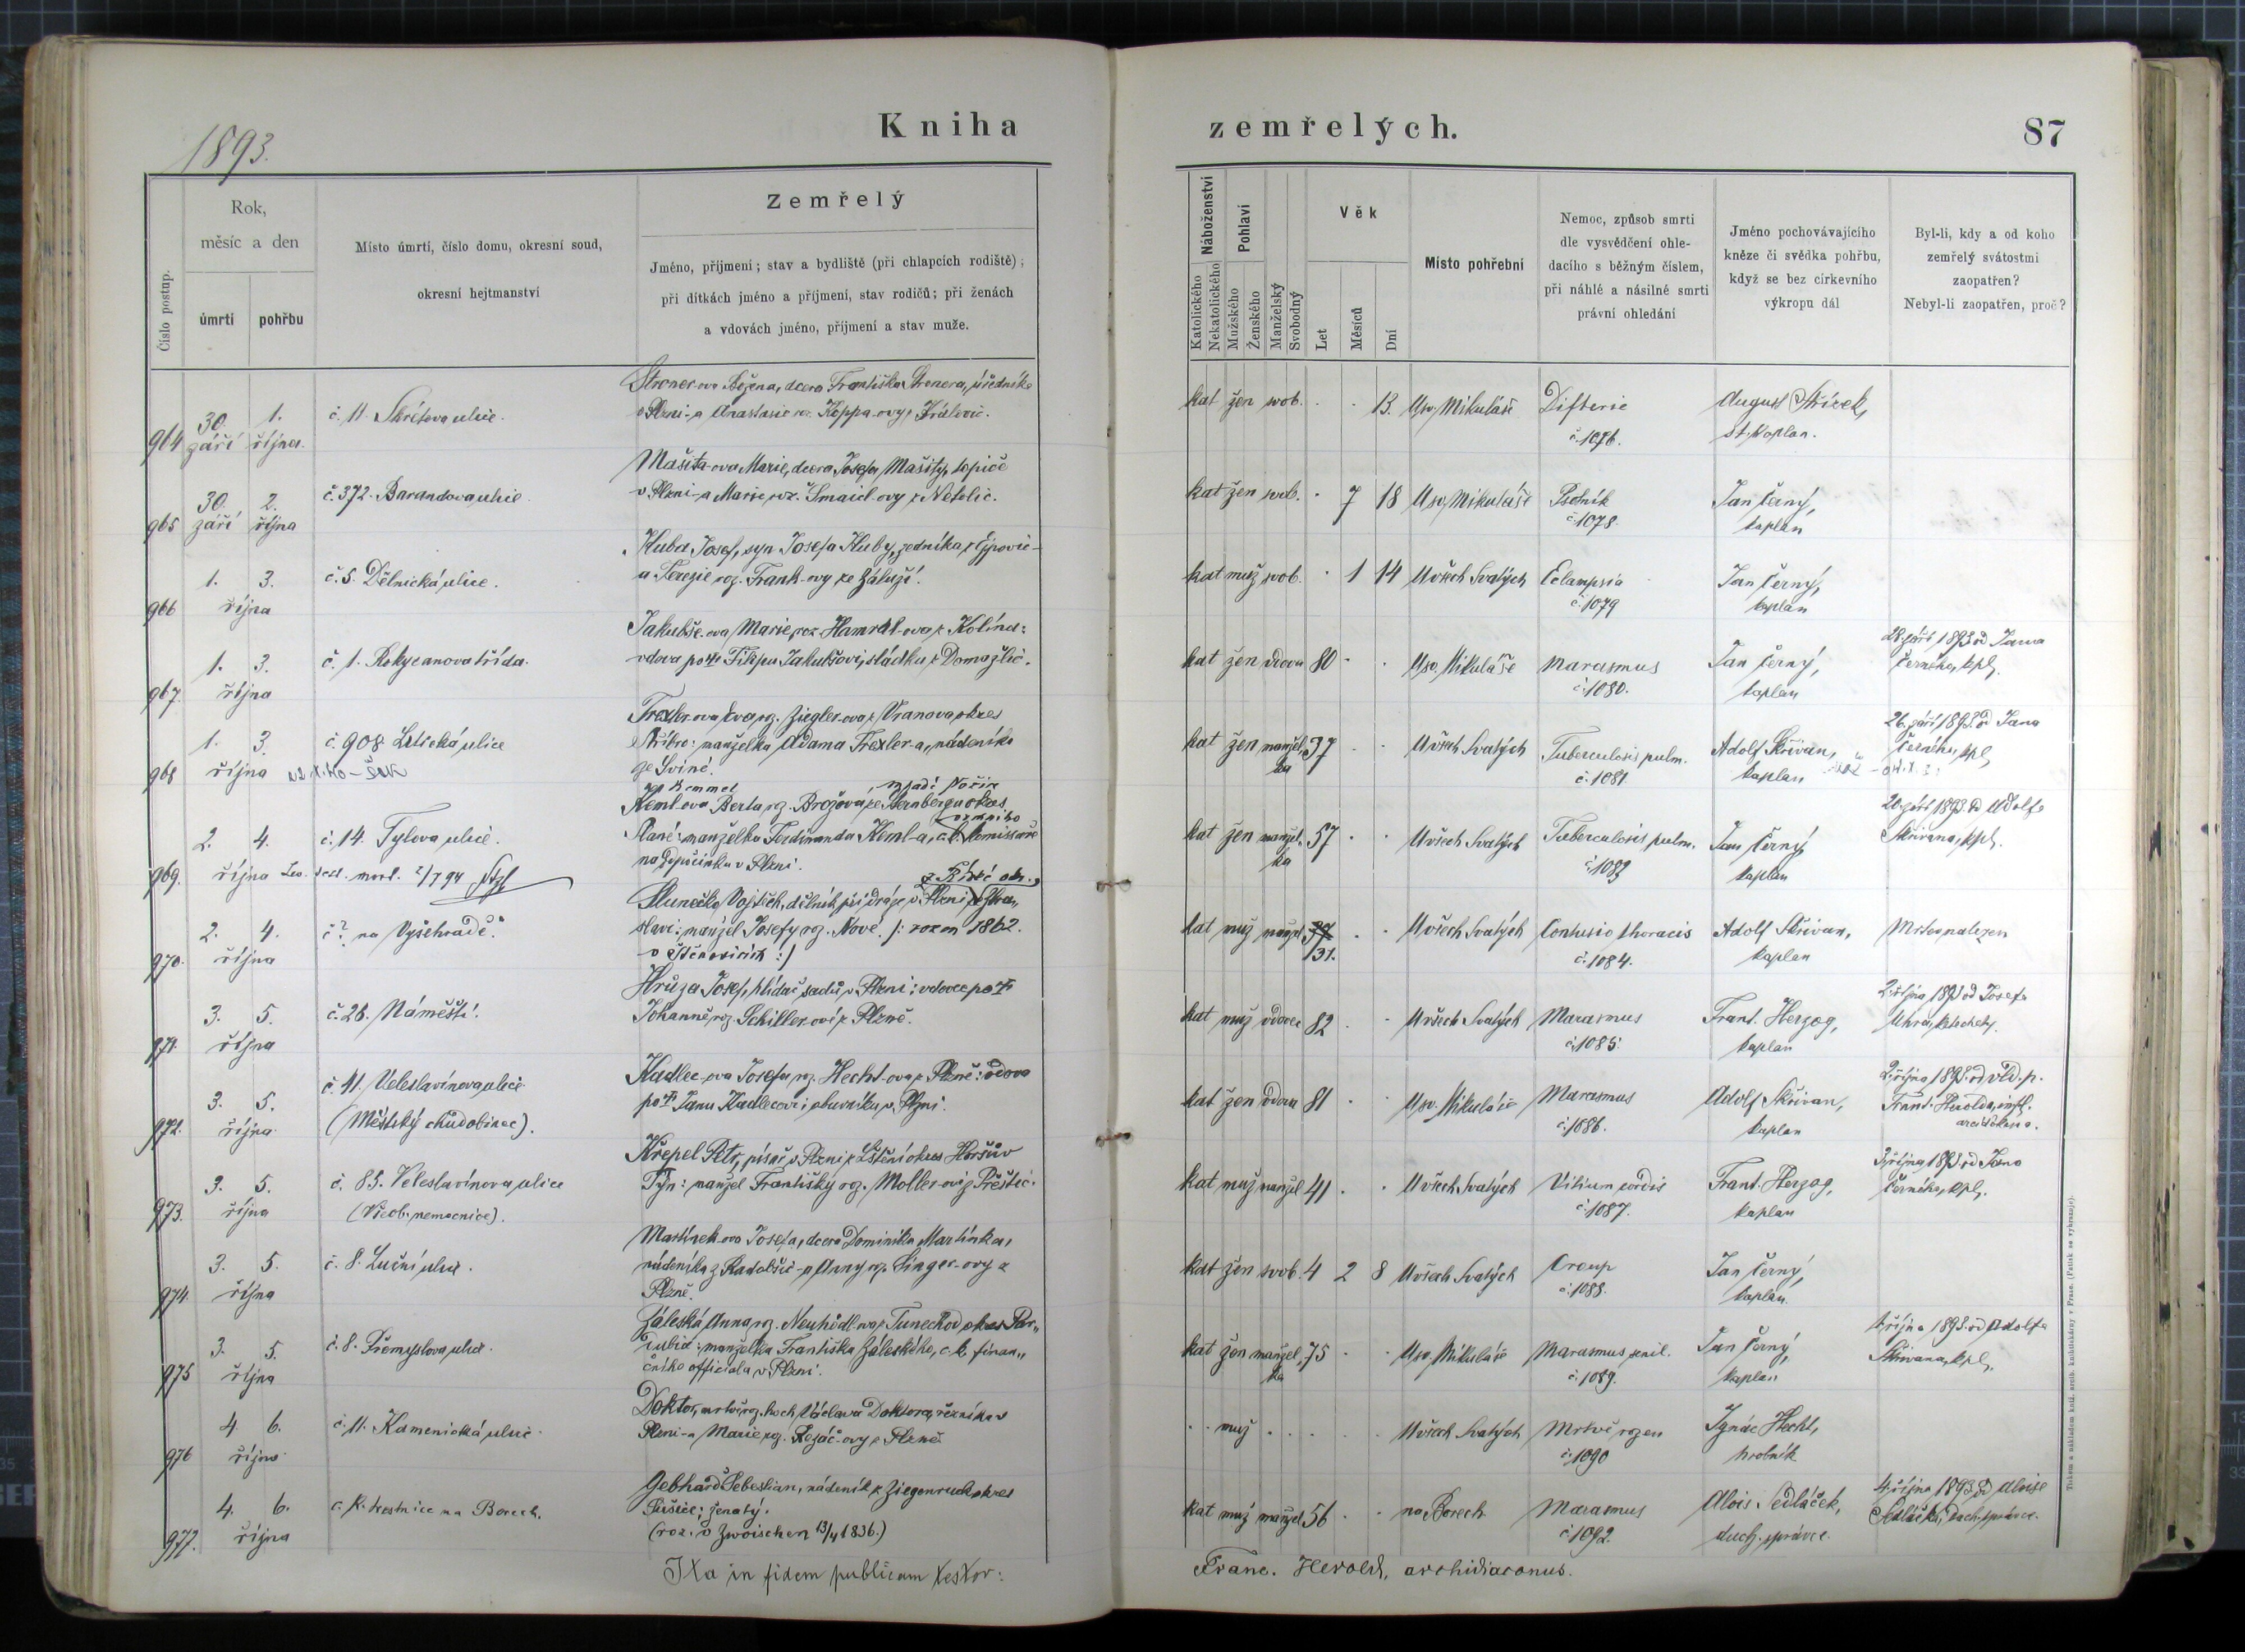 1893.
Kniha
zemřelých.
87
Číslo postup.
Rok,
měsíc a den
úmrtí
pohřbu
Místo úmrtí, číslo domu, okresní soud,
okresní hejtmanství
Zemřelý
Jméno, příjmení; stav a bydliště (při chlapcích rodiště);
při dítkách jméno a příjmení, stav rodičů; při ženách
a vdovách jméno, příjmení a stav muže.
Náboženství
Katolického
Nekatolického
Pohlaví
Mužského
Ženského
Manželský
Svobodný
Věk
Let
Měsíců
Dní
Místo pohřební
Nemoc, způsob smrti
dle vysvědčení ohle-
dacího s běžným číslem,
při náhlé a násilné smrti
právní ohledání
Jméno pochovávajícího
kněze či svědka pohřbu,
když se bez církevního
výkropu dál
Byl-li, kdy a od koho
zemřelý svátostmi
zaopatřen?
Nebyl-li zaopatřen, proč?
964 30. září 1. října č. 11. Skrétova ulice.
Stroner-ova Božena, dcera Františka Stronera, úředníka
v Plzni-a Anastasie roz. Koppa-ovy z Královic.
kat žen svob. . . 13. U sv. Mikuláše Difterie č. 1076. August Střízek, st. kaplan.
965 30. září 2. října č. 372. Barandova ulice
Mašita-ova Marie, dcera Josefa Mašity, topiče
v Plzni-a Marie roz. Šmaicl-ovy z Netolic.
kat žen svob. . 7 18 U sv. Mikuláše Psotník č. 1078. Jan Černý, kaplan
966 1. 3. října č. 5. Dělnická ulice.
Huba Josef, syn Josefa Huby, zedníka z Ejpovic-
a Terezie roz. Frank-ovy ze Záluží.
kat muž svob. . 1 14 U všech Svatých Eclampsia č. 1079 Jan Černý, kaplan
967 1. 3. října č. 1. Rokycanova třída.
Jakubše-ova Marie, roz. Hamrdl-ova z Kolína:
vdova po † Filipu Jakubšovi, sládku z Domažlic.
kat žen vdova 80 . . U sv. Mikuláše Marasmus č. 1080. Jan Černý, kaplan
28. září 1893 od Jana
Černého, kpl.
968 1. 3. října č. 908 Letická ulice
Trexler-ova Eva roz. Ziegler-ova z Vranova okres
Stříbro: manželka Adama Trexler-a, nádeníka
ze Sviné.
kat žen manžel-ka 37 . . U všech Svatých Tuberculosis pulm. č. 1081 Adolf Skřivan, kaplan
26. září 1893 od Jana
Černého, kpl.
969. 2. 4. října č. 14. Tylova ulice.
Keml-ova Berta roz. Brožova ze Šternberga okres
Plané: manželka Ferdinanda Keml-a, c. k. komissaře
na odpočinku v Plzni.
kat žen manžel-ka 57 . . U všech Svatých Tuberculosis pulm. č. 1083 Jan Černý, kaplan
20. září 1893 od Adolfa
Skřivana, kpl.
970. 2. 4. října č.? na Vyšehradě.
Slunečko Vojtěch, dělník při dráze v Plzni
slavi: manžel Josefy roz. Nové. /: rozen 1862.
v Štěnovicích :/
kat muž manžel 37 131. . . U všech Svatých Contusio thoracis č. 1084. Adolf Skřivan, kaplan Mrtev nalezen
971. 3. 5. října č. 26. Náměstí.
Hrůza Josef, hlídač sadů v Plzni: vdovec po †
Johanně roz. Schiller-ové z Plzně.
kat muž vdovec 82 . . U všech Svatých Marasmus č. 1085. Frant. Herzog, kaplan
2. října 1893 od Josefa
Uhra, katechety.
972. 3. 5. října č. 41. Veleslavínova ulice
(Městský chudobinec).
Kadlec-ova Josefa roz. Hecht-ova z Plzně: vdova
po † Janu Kadlecovi, obuvníku v Plzni.
kat žen vdova 81 . . U sv. Mikuláše Marasmus č. 1086. Adolf Skřivan, kaplan
2. října 1893 od vld. p.
Frant. Herolda, inf.
arciděkana.
973. 3. 5. října č. 85. Veleslavínova ulice
(Všeob. nemocnice).
Křepel Petr, písař v Plzni z Lštění okres Horšův
Týn: manžel Františky roz. Moller-ovy z Přeštic.
kat muž manžel 41 . . U všech Svatých Vitium cordis č. 1087. Frant. Herzog, kaplan
3. října 1893 od Jana
Černého, kpl.
974. 3. 5. října č. 8. Luční ulice.
Martínek-ova Josefa, dcera Dominika Martínka,
nádeníka z Radobčic-a Anny roz. Singer-ovy z
Plzně.
kat žen svob. 4 2 8 U všech Svatých Croup č. 1088. Jan Černý, kaplan.
975 3. 5. října č. 8. Přemyslova ulice.
Záleská Anna, roz. Neuhödl-ova z Tunechod okres Par„
dubice: manželka Františka Záleského, c. k. finan„
čního officiala v Plzni.
kat žen manžel-ka 75 . . U sv. Mikuláše Marasmus senil. č. 1089. Jan Černý, kaplan
1. října 1893 od Adolfa
Skřivana, kpl.
976 4. 6. října č. 11. Kamenická ulice.
Doktor, mrtvě roz. hoch Václava Doktora, řezníka v
Plzni-a Marie roz. Rozáč-ovy z Plzně.
. . muž . . . . . U všech Svatých Mrtvě rozen č. 1090 Ignác Hecht, hrobník
977. 4. 6. října c. k. trestnice na Borech.
Gebhard Šebestian, nádeník z Ziegenruck okres
Sušice; ženatý.
(roz. v Zwoischen 13/4 1836.)
kat muž manžel 56 . . na Borech Marasmus č. 1092. Alois Sedláček, duch. správce.
4. října 1893 od Aloise
Sedláčka, duch. správce.
Ita in fidem publicam testor:
Franc. Herold, archidiaconus.